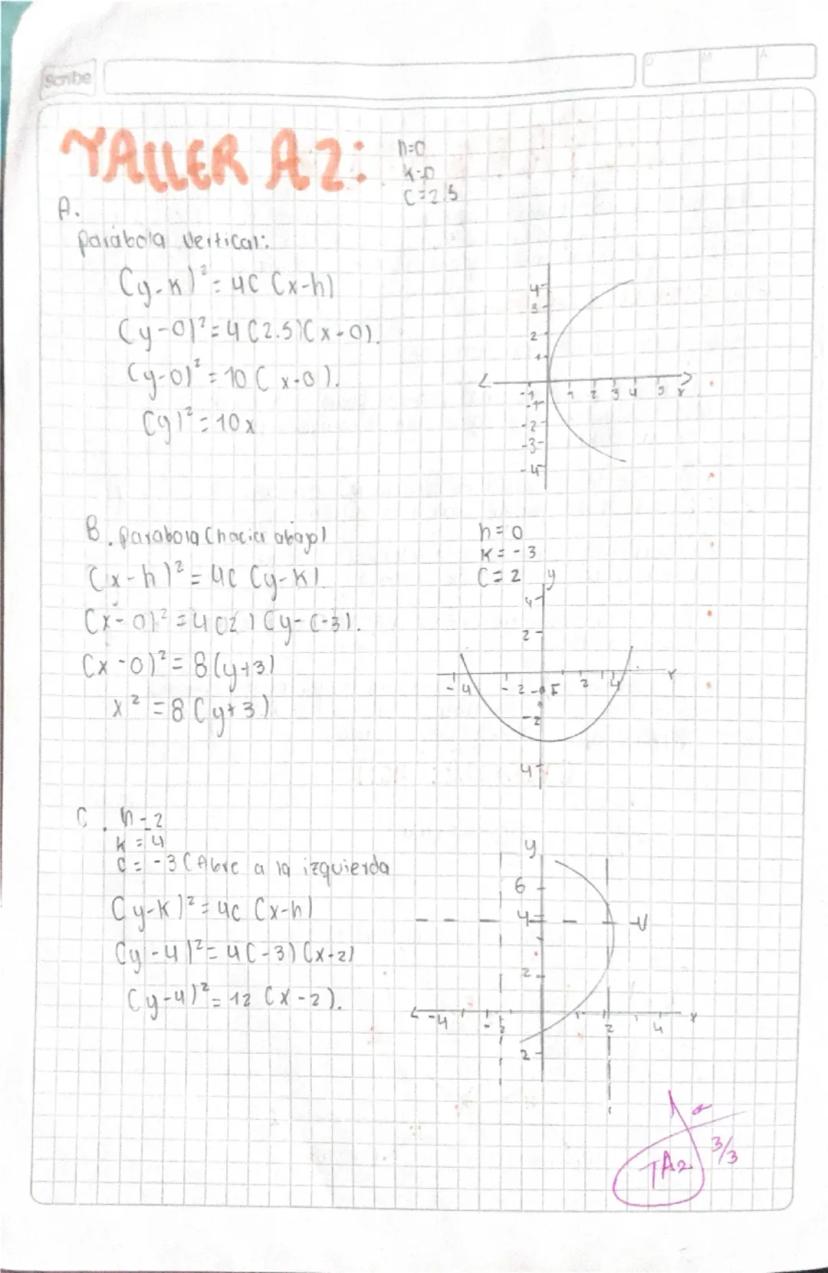 Scribe
D M A
TALLER A2:
h=0
k=0
C=2.5
A.
parábola vertical:
(y-k)²=4c (x-h)
(y-0)²=4(2.5)(x-0).
(y-0)²=10(x-0).
(y)²=10x
4
3
2
1
-1 1 2 3 4 5 x
-1
-2
-3
-4
B. parabola (hacia abajo)
h=0
k=-3
C=2
(x-h)²=4c (y-k)
(x-0)²=4(2)(y-(-3).
(x-0)²=8(y+3)
x²=8(y+3)
y
4
2
-4 -2 2 4 x
-2
4
C. h-2
k=4
c=-3 (Abre a la izquierda
(y-k)²=4c (x-h)
(y-4)²=4(-3)(x-2)
(y-4)²=12 (x-2).
y
6
4
2
-4 2 4 x
2
TA2 3/3